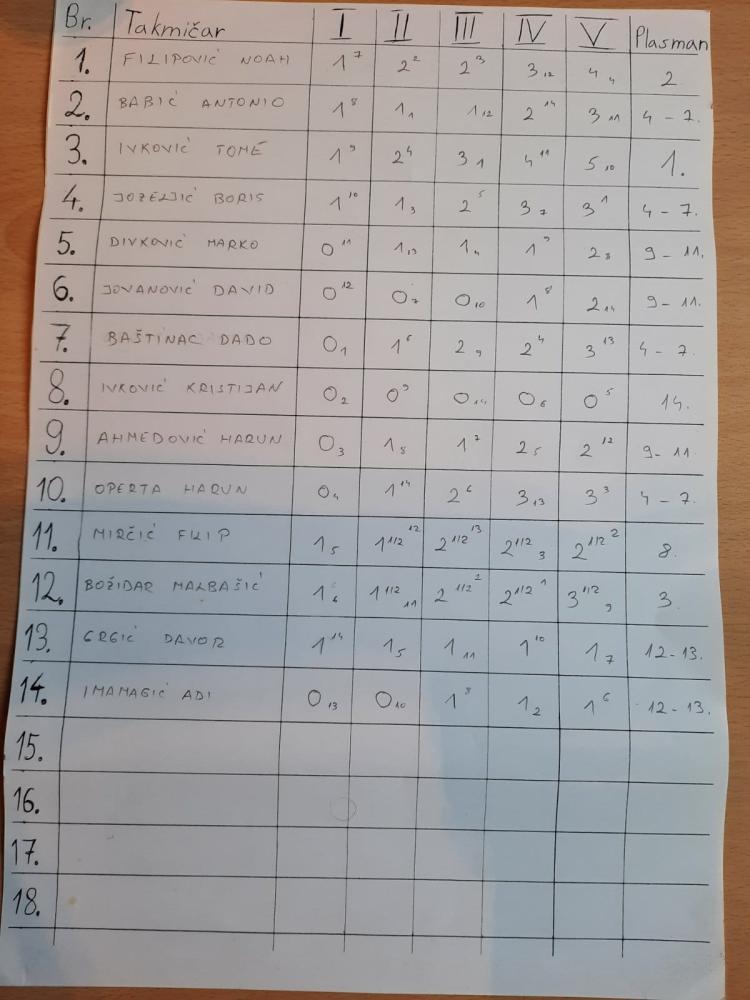 Br. Takmičar I II III IV V Plasman
1. FILIPOVIĆ NOAH 1⁷ 2² 2³ 3₁₂ 4₄ 2
2. BABIĆ ANTONIO 1⁸ 1₁ 1₁₂ 2¹⁴ 3₁₁ 4-7.
3. IVKOVIĆ TOME 1⁹ 2⁴ 3₁ 4¹¹ 5₁₀ 1.
4. JOZELJIĆ BORIS 1¹⁰ 1₃ 2⁵ 3₇ 3¹ 4-7.
5. DIVKOVIĆ MARKO 0¹¹ 1₁₃ 1₄ 1⁹ 2₈ 9-11.
6. JOVANOVIĆ DAVID 0¹² 0₇ 0₁₀ 1⁸ 2₁₄ 9-11.
7. BAŠTINAC DADO 0₁ 1⁶ 2₉ 2⁴ 3¹³ 4-7.
8. IVKOVIĆ KRISTIJAN 0₂ 0⁹ 0₁₄ 0₆ 0⁵ 14.
9. AHMEDOVIĆ HARUN 0₃ 1₈ 1⁷ 2₅ 2¹² 9-11.
10. OPERTA HARUN 0₄ 1¹⁴ 2⁶ 3₁₃ 3³ 4-7.
11. MIRČIĆ FILIP 1₅ 1¹ᐟ² ¹² 2¹ᐟ² ¹³ 2¹ᐟ² ₃ 2¹ᐟ² ² 8.
12. BOŽIDAR MALBAŠIĆ 1₆ 1¹ᐟ² ₁₁ 2¹ᐟ² ² 2¹ᐟ² ¹ 3¹ᐟ² ₉ 3
13. GRGIĆ DAVOR 1¹⁴ 1₅ 1₁₁ 1¹⁰ 1₇ 12-13.
14. IMAMAGIĆ ADI 0₁₃ 0₁₀ 1⁸ 1₂ 1⁶ 12-13.
15.
16.
17.
18.